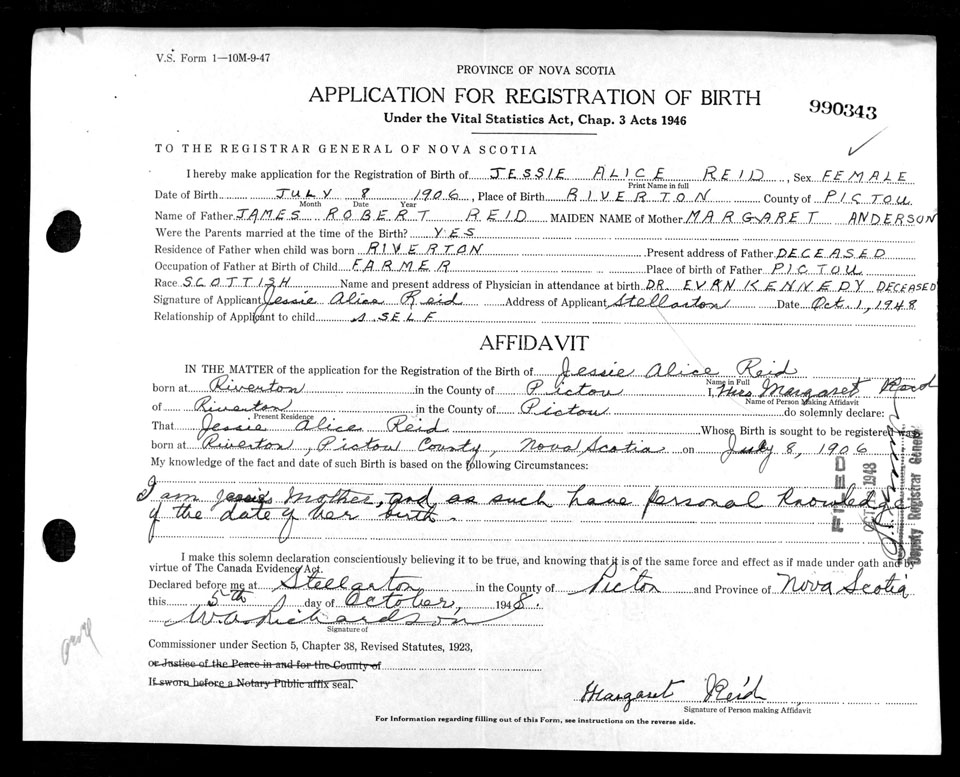 V.S. Form 1—10M-9-47
PROVINCE OF NOVA SCOTIA
APPLICATION FOR REGISTRATION OF BIRTH
990343
Under the Vital Statistics Act, Chap. 3 Acts 1946
TO THE REGISTRAR GENERAL OF NOVA SCOTIA
I hereby make application for the Registration of Birth of JESSIE ALICE REID, Sex FEMALE
Print Name in full
Date of Birth JULY 8 1906, Place of Birth RIVERTON County of PICTOU
Month Date Year
Name of Father JAMES ROBERT REID MAIDEN NAME of Mother MARGARET ANDERSON
Were the Parents married at the time of the Birth? YES
Residence of Father when child was born RIVERTON Present address of Father DECEASED
Occupation of Father at Birth of Child FARMER Place of birth of Father PICTOU
Race SCOTTISH Name and present address of Physician in attendance at birth DR. EVAN KENNEDY DECEASED
Signature of Applicant Jessie Alice Reid Address of Applicant Stellarton Date Oct. 1, 1948
Relationship of Applicant to child SELF
AFFIDAVIT
IN THE MATTER of the application for the Registration of the Birth of Jessie Alice Reid
Name in Full
born at Riverton in the County of Pictou I, Mrs Margaret Reid
Name of Person Making Affidavit
of Riverton in the County of Pictou do solemnly declare:
Present Residence
That Jessie Alice Reid Whose Birth is sought to be registered was
born at Riverton, Pictou County, Nova Scotia on July 8, 1906
My knowledge of the fact and date of such Birth is based on the following Circumstances:
I am Jessie's Mother, and as such have personal knowledge
of the date of her birth.
FILED
OCT 1948
Deputy Registrar General
I make this solemn declaration conscientiously believing it to be true, and knowing that it is of the same force and effect as if made under oath and by
virtue of The Canada Evidence Act.
Declared before me at Stellarton in the County of Pictou and Province of Nova Scotia
this 5th day of October, 1948.
W. A. Richardson
Signature of
Commissioner under Section 5, Chapter 38, Revised Statutes, 1923,
or Justice of the Peace in and for the County of
If sworn before a Notary Public affix seal.
Margaret Reid
Signature of Person making Affidavit
For Information regarding filling out of this Form, see instructions on the reverse side.